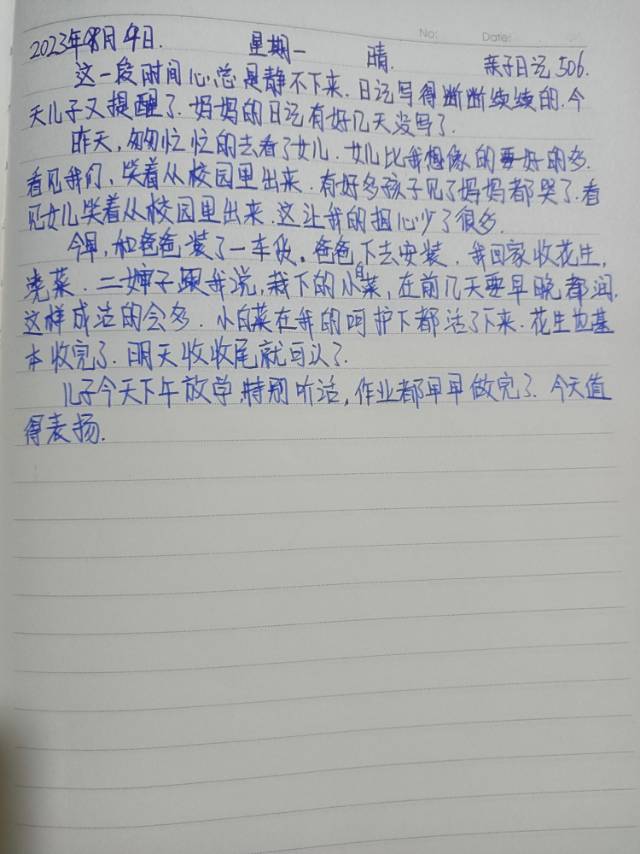 No: Date:
2023年8月4日. 星期一 晴. 亲子日记506.
这一段时间心总是静不下来.日记写得断断续续的.今
天儿子又提醒了.妈妈的日记有好几天没写了.
昨天,匆匆忙忙的去看了女儿.女儿比我想像的要好的多.
看见我们,笑着从校园里出来.有好多孩子见了妈妈都哭了.看
见女儿笑着从校园里出来.这让我的担心少了很多.
今早,和爸爸装了一车货.爸爸下去安装.我回家收花生,
浇菜.二婶子跟我说,栽下的小白菜,在前几天要早晚都润.
这样成活的会多.小白菜在我的呵护下都活了下来.花生也基
本收完了.明天收收尾就可以了.
儿子今天下午放学特别听话,作业都早早做完了.今天值
得表扬.